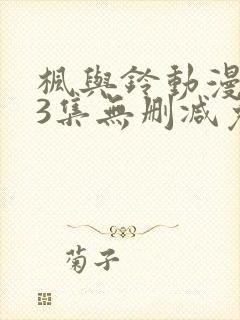 楓與鈴動漫
3集無删減
菊子